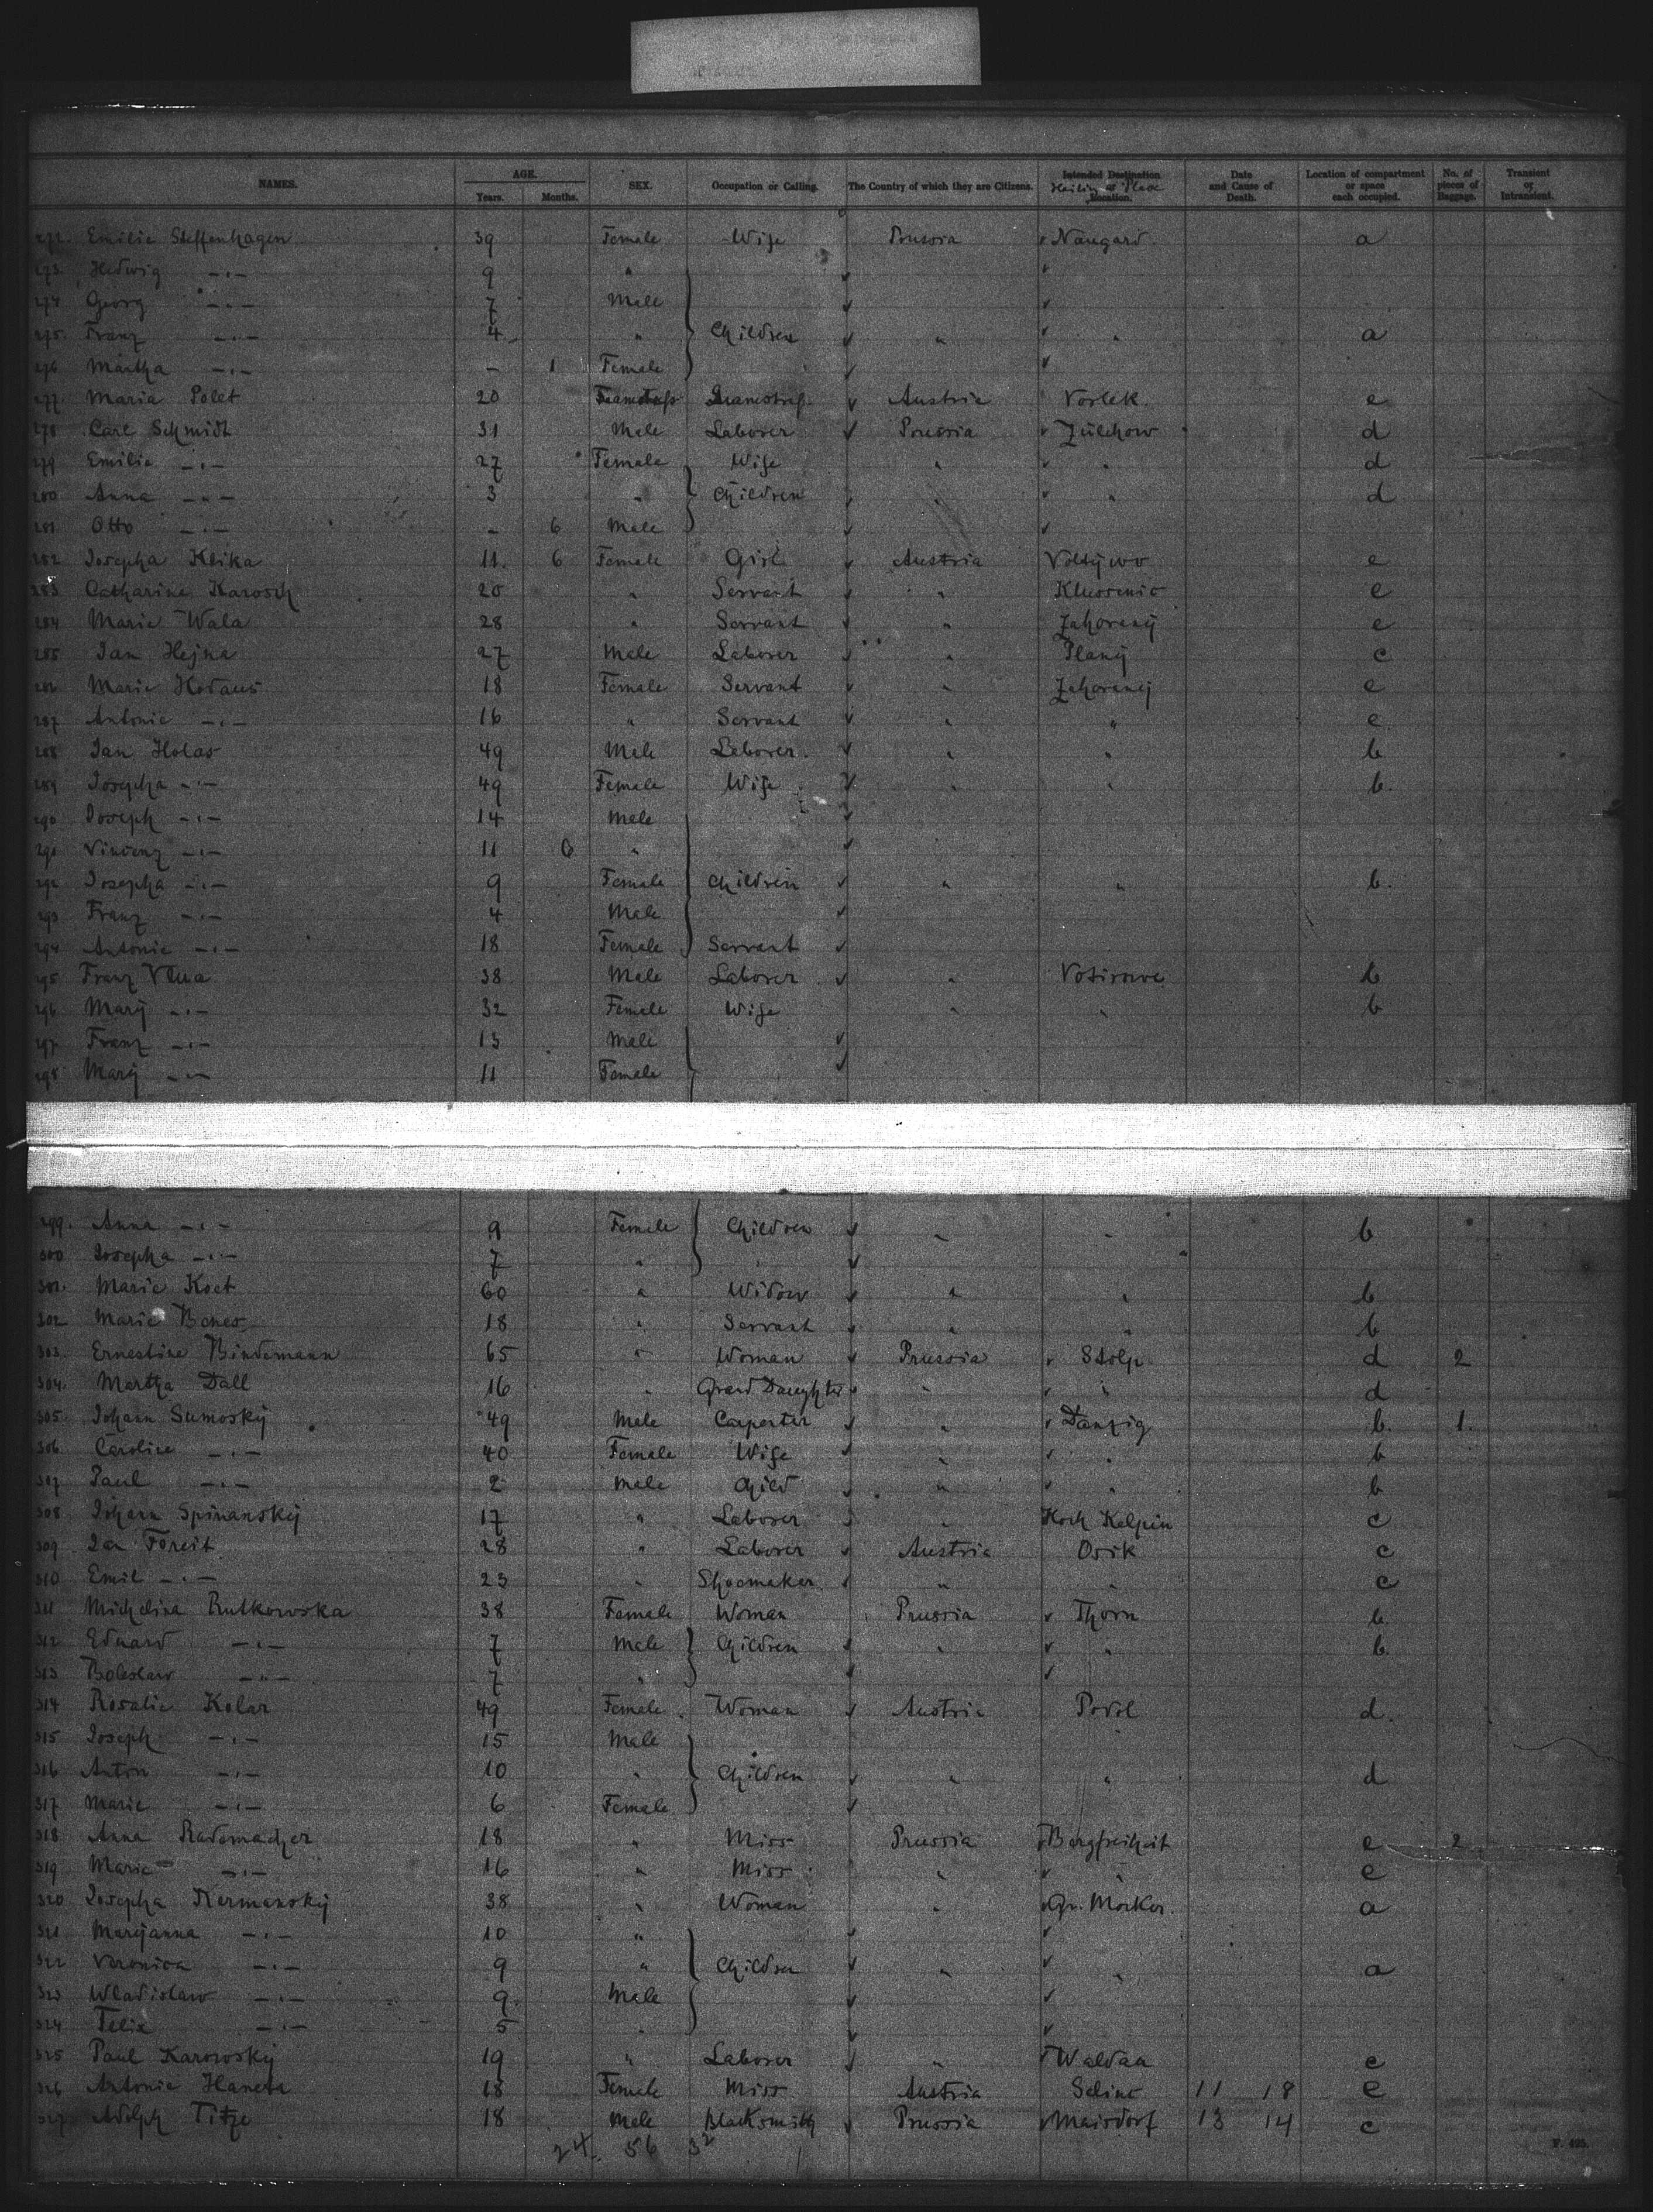 NAMES. AGE. Years. Months. SEX. Occupation or Calling. The Country of which they are Citizens. Intended Destination or Place Location. Date and Cause of Death. Location of compartment or space each occupied. No. of pieces of Baggage. Transient or Intransient.
272. Emilie Steffenhagen 39 Female Wife Prussia Naugard a
273. Hedwig -"- 9 "
274 Georg -"- 7 Male
275. Franz -"- 4 " Children " " a
276 Martha -"- - 1 Female
277. Maria Polet 20 Seamstress Austria Vorlek e
278 Carl Schmidt 31 Male Laborer Prussia Züllchow d
279 Emilie -"- 27 Female Wife " " d
280 Anna -"- 3 " Children " " d
281 Otto -"- - 6 Male
282 Josepha Klika 11. 6 Female Girl Austria e
283 Catharina Karosch 20 " Servant " e
284 Marie Wala 28 " Servant " Zahorany e
285 Jan Hejna 27 Male Laborer " Plany c
286 Marie Hodaus 18 Female Servant " Zahorany e
287 Antonie -"- 16 " Servant " " e
288 Jan Holas 49 Male Laborer " " b
289 Josepha -"- 49 Female Wife " " b.
290 Joseph -"- 14 Male
291 Vincenz -"- 11 6 "
292 Josepha -"- 9 Female Children " " b.
293 Franz -"- 4 Male
294 Antonie -"- 18 Female Servant
295 Franz 38 Male Laborer " b
296 Mary -"- 32 Female Wife " " b
297 Franz -"- 13 Male
298 Mary -"- 11 Female
299. Anna -"- 9 Female Children " " b
300 Josepha -"- 7 "
301. Marie Koct 60 " Widow " " b
302 Marie Benes 18 " Servant " " b
303. Ernestine Bindemann 65 " Woman Prussia Stolp d 2
304. Martha Dall 16 " Grand Daughter " " d
305. Johann Sumosky 49 Male Carpenter " Danzig b. 1.
306 Caroline -"- 40 Female Wife " " b
307 Paul -"- 2 Male Child " " b
308. Johann Spinansky 17 " Laborer " Hoch Kelpin c
309 Jan Foreit 28 " Laborer Austria Osik c
310 Emil -"- 23 " Shoemaker " " c
311 Michelina Rutkowska 38 Female Woman Prussia Thorn b.
312 Eduard -"- 7 Male Children " " b.
313 Boleslaw -"- 7 "
314 Rosalie Kolar 49 Female Woman Austria Podol d.
315 Joseph -"- 15 Male
316 Anton -"- 10 " Children " " d
317 Marie -"- 6 Female
318 Anna Rademacher 18 " Miss Prussia Bergfreiheit e 2
319 Marie -"- 16 " Miss " " e
320 Josepha Kermansky 38 " Woman " Gr. Mocker a
321 Maryanna -"- 10 "
322 Veronica -"- 9 " Children " " a
323 Wladislaw -"- 9 Male
324 Felix -"- 5 "
325 Paul Karowsky 19 " Laborer " Waldau c
326 Antonie Haneta 18 Female Miss Austria Selino 11 18 e
327 Adolph Titze 18 Male Blacksmith Prussia Maisdorf 13 14 c
24. 56 32